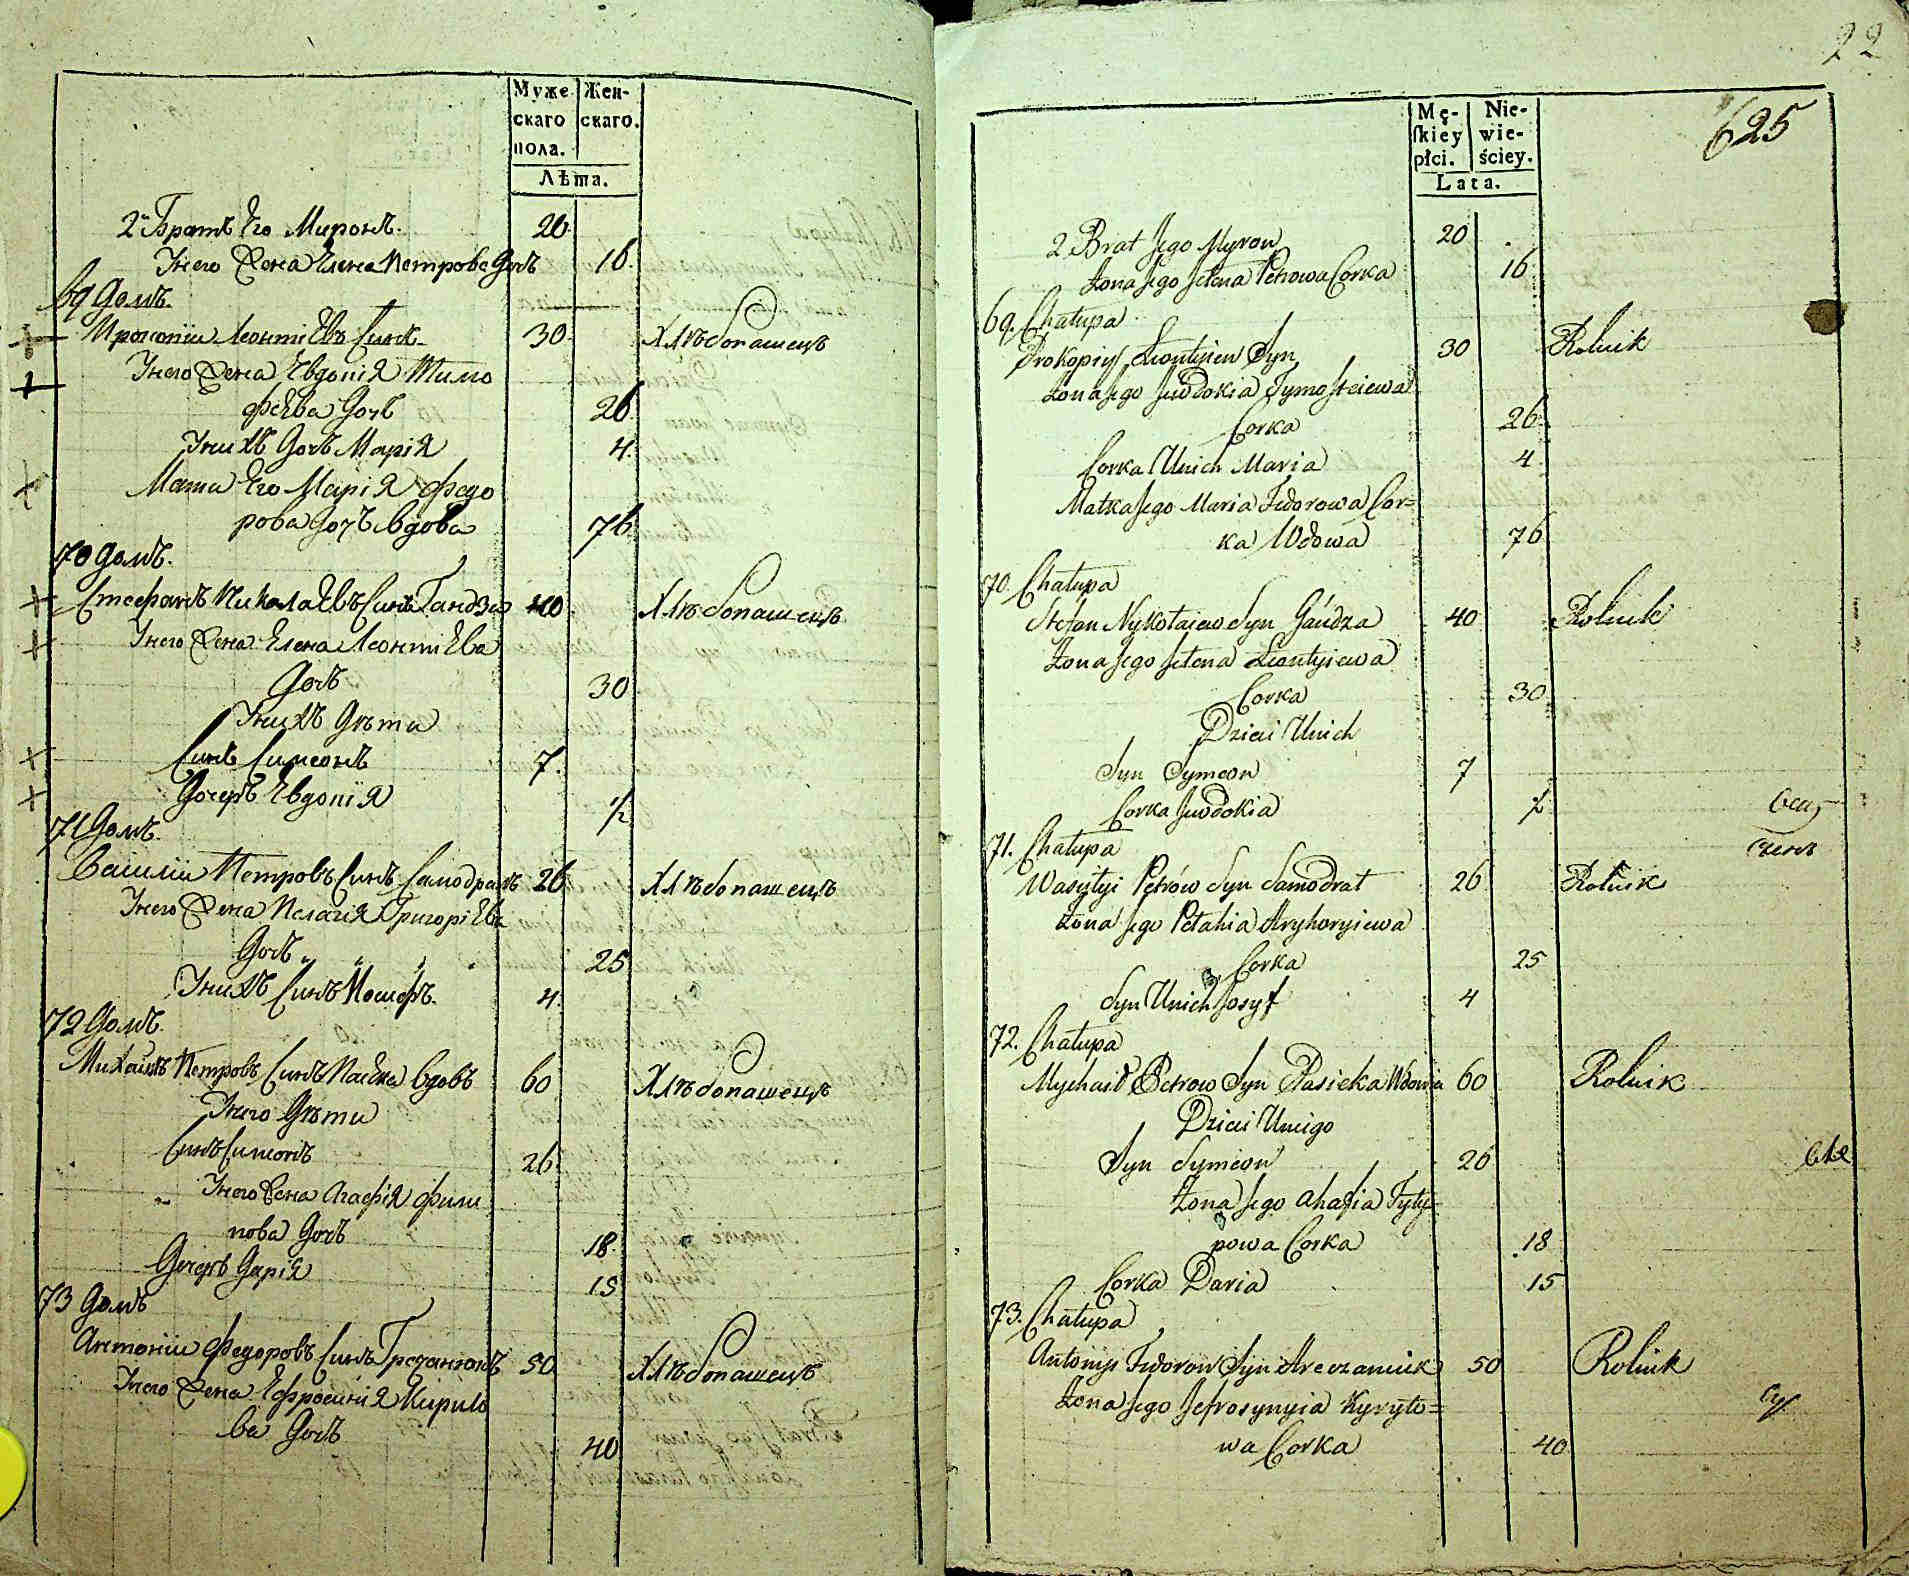 Муже
скаго
пола.
Жен-
скаго.
Лѣта.
2й Братъ Его Миронъ. 20.
Унего Жена Елена Петрова Дочь 16.
69 Домъ.
Прокопій Леонтіевъ Синъ 30. Хлѣбопашецъ
Унего Жена Евдокія Тимо
феева Дочь 26.
Унихъ Дочь Марія 4.
Мати Его Марія Федо
рова Дочь вдова 76
70 Домъ.
Стефанъ Николаевъ Синъ Гандза 40. Хлѣбопашецъ
Унего Жена Елена Леонтіева
Дочь 30
Унихъ Дѣти
Синъ Симеонъ 7.
Дочерь Евдокія 1/2
71 Домъ.
Василій Петровъ Синъ Самодратъ 26 Хлѣбопашецъ
Унего Жена Пелагія Григоріева
Дочь 25
Унихъ Синъ Иосифъ. 4.
72 Домъ.
Михаилъ Петровъ Синъ Пасѣка вдовъ 60 Хлѣбопашецъ
Унего Дѣти
Синъ Симеонъ 26
Унего Жена Агафія Фили
пова Дочь 18.
Дочерь Дарія 15
73 Домъ
Антоній Федоровъ Синъ Гречанюкъ 50 Хлѣбопашецъ
Унего Жена Ефросинія Кирило
ва Дочь 40
22
625
Mę-
ſkiey
płci.
Nie-
wie-
ściey.
Lata.
2 Brat Jego Myron 20
Żona Jego Jełena Petrowa Corka 16
69. Chałupa
Prokopiy Leontyiew Syn 30 Rolnik
Żona Jego Jewdokia Tymofteiewa
Corka 26
Corka Unich Maria 4
Matka Jego Maria Fedorowa Cor=
ka Wdowa 76
70. Chałupa
Stefan Nykołaiew Syn Gándza 40 Rolnik
Żona Jego Jełena Leontyiewa
Corka 30
Dzieci Unich
Syn Symeon 7
Corka Jewdokia 1/2
71. Chałupa
Wasylyi Petrów Syn Samodrat 26 Rolnik
Żona Jego Pełahia Hryhoryiewa
Corka 25
Syn Unich Josyf 4
72. Chałupa
Mychaił Petrow Syn Pasieka Wdowiec 60 Rolnik
Dzieci Uniego
Syn Symeon 26
Żona Jego Ahafia Fyły=
powa Corka 18
Corka Daria 15
73. Chałupa
Antonyi Fedorow Syn Hreczaniuk 50 Rolnik
Żona Jego Jefrosynyia Kyryło=
wa Corka 40